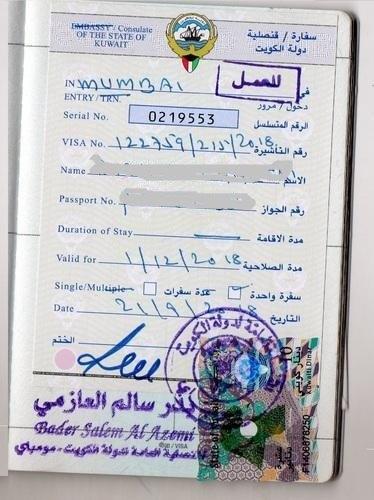 EMBASSY / Consulate سفارة / قنصلية
OF THE STATE OF KUWAIT دولة الكويت
IN MUMBAI للعمل في
ENTRY / TRN. دخول / مرور
Serial No. 0219553 الرقم المتسلسل
VISA No. 122759/215/2018 رقم التأشيرة
Name الاسم
Passport No. رقم الجواز
Duration of Stay مدة الاقامة
Valid for 1/12/2018 مدة الصلاحية
Single/Multiple عدة سفرات سفرة واحدة
Date 21/9/2018 التاريخ
الختم
بدر سالم العازمي
Bader Salem Al Azemi
القنصلية العامة لدولة الكويت - مومباي
10
دينار كويتي
Kuwaiti Dinar